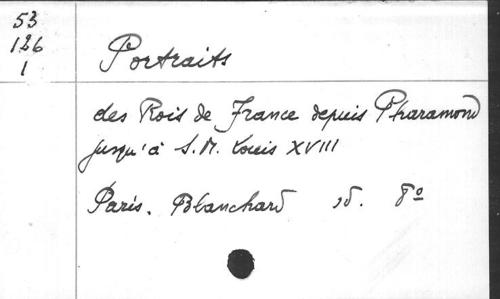 53
126
1
Portraits
des Rois de France depuis Pharamond
jusqu'à S. M. Louis XVIII
Paris. Blanchard sd. 8º